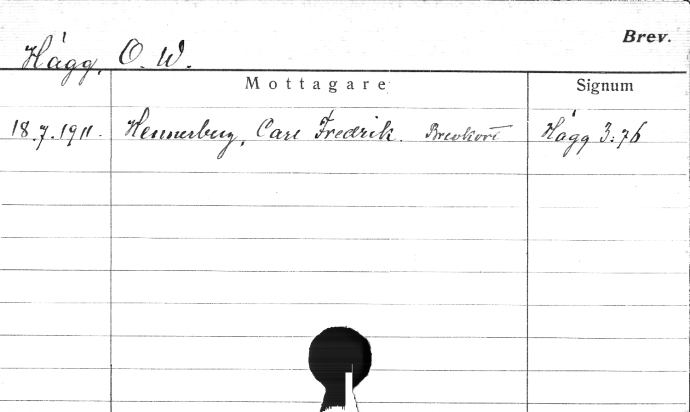 Brev.
Hägg, O. W.
Mottagare Signum
18.7.1911. Hennerberg, Carl Fredrik. Brevkort Hägg 3:76